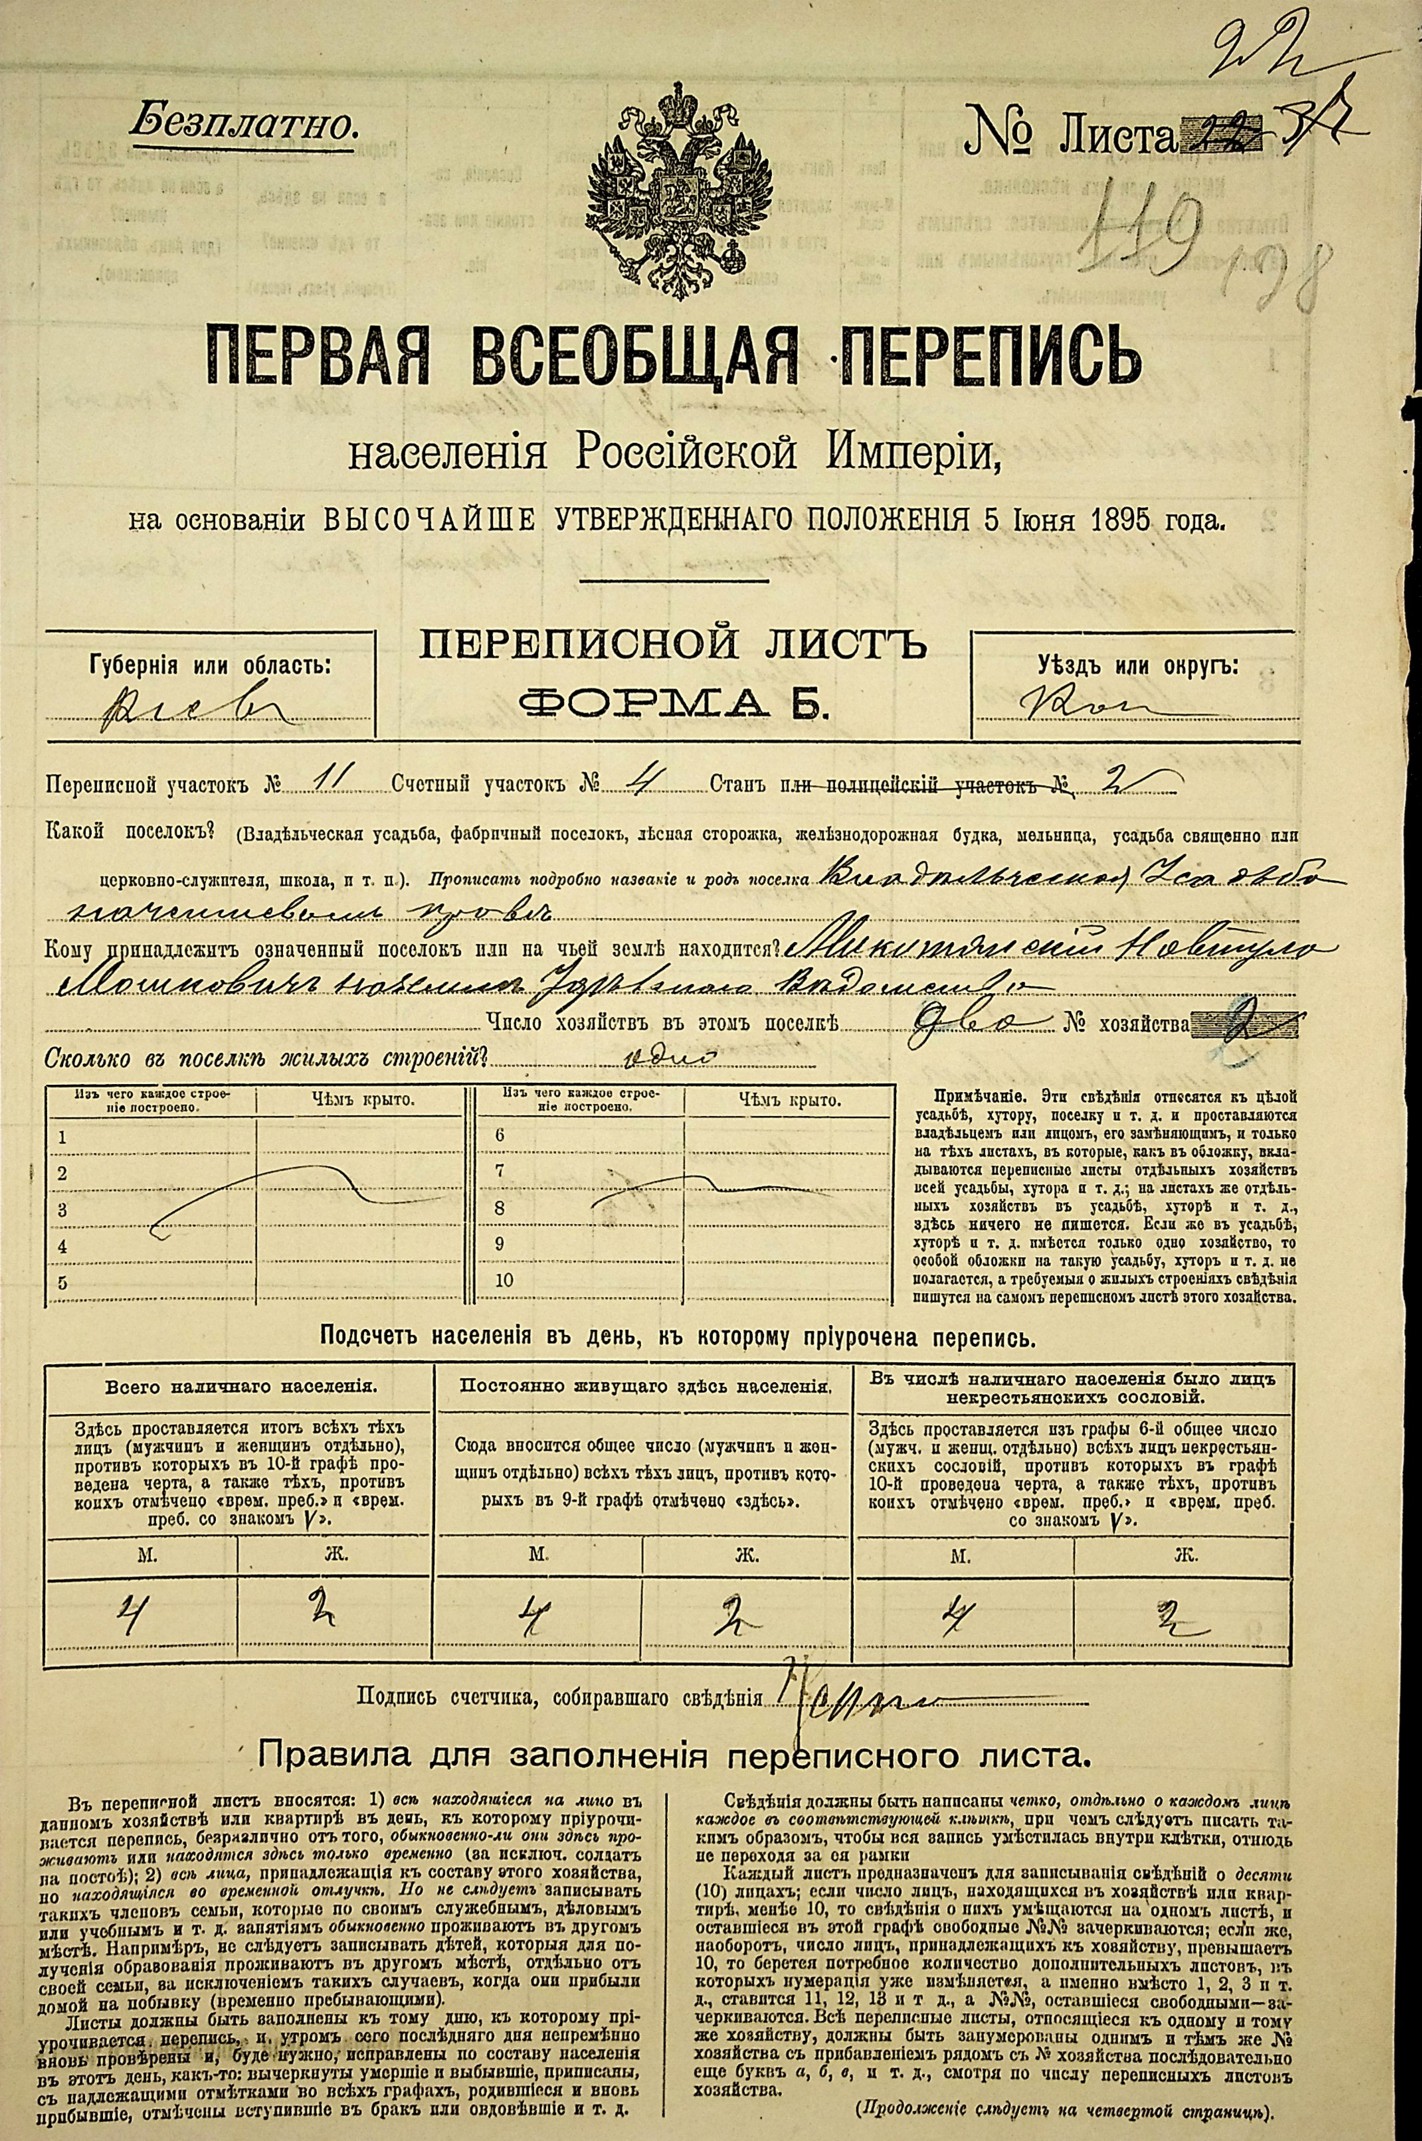 22
Безплатно.
№ Листа 22 37
119 198
ПЕРВАЯ ВСЕОБЩАЯ ПЕРЕПИСЬ
населенія Россійской Имперіи,
на основаніи ВЫСОЧАЙШЕ УТВЕРЖДЕННАГО ПОЛОЖЕНІЯ 5 Іюня 1895 года.
ПЕРЕПИСНОЙ ЛИСТЪ
ФОРМА Б.
Губернія или область:
Киев
Уѣздъ или округъ:
Кан
Переписной участокъ № 11 Счетный участокъ № 4 Станъ или полицейскій участокъ № 2
Какой поселокъ? (Владѣльческая усадьба, фабричный поселокъ, лѣсная сторожка, желѣзнодорожная будка, мельница, усадьба священно или
церковно-служителя, школа, и т. п.). Прописать подробно названіе и родъ поселка Владѣльческая Усадьба
Кому принадлежитъ означенный поселокъ или на чьей землѣ находится? Микитянскій
Мошковичъ Удѣльнаго Вѣдомства
Число хозяйствъ въ этомъ поселкѣ два № хозяйства 2
Сколько въ поселкѣ жилыхъ строеній? одно
Изъ чего каждое строеніе построено. Чѣмъ крыто. Изъ чего каждое строеніе построено. Чѣмъ крыто.
1 6
2 7
3 8
4 9
5 10
Примѣчаніе. Эти свѣдѣнія относятся къ цѣлой
усадьбѣ, хутору, поселку и т. д. и проставляются
владѣльцемъ или лицомъ, его замѣняющимъ, и только
на тѣхъ листахъ, въ которые, какъ въ обложку, вкла-
дываются переписные листы отдѣльныхъ хозяйствъ
всей усадьбы, хутора и т. д.; на листахъ же отдѣль-
ныхъ хозяйствъ въ усадьбѣ, хуторѣ и т. д.,
здѣсь ничего не пишется. Если же въ усадьбѣ,
хуторѣ и т. д. имѣется только одно хозяйство, то
особой обложки на такую усадьбу, хуторъ и т. д. не
полагается, а требуемыя о жилыхъ строеніяхъ свѣдѣнія
пишутся на самомъ переписномъ листѣ этого хозяйства.
Подсчетъ населенія въ день, къ которому пріурочена перепись.
Всего наличнаго населенія.
Здѣсь проставляется итогъ всѣхъ тѣхъ
лицъ (мужчинъ и женщинъ отдѣльно),
противъ которыхъ въ 10-й графѣ про-
ведена черта, а также тѣхъ, противъ
коихъ отмѣчено «врем. преб.» и «врем.
преб. со знакомъ V».
Постоянно живущаго здѣсь населенія.
Сюда вносится общее число (мужчинъ и жен-
щинъ отдѣльно) всѣхъ тѣхъ лицъ, противъ кото-
рыхъ въ 9-й графѣ отмѣчено «здѣсь».
Въ числѣ наличнаго населенія было лицъ
некрестьянскихъ сословій.
Здѣсь проставляется изъ графы 6-й общее число
(мужч. и женщ. отдѣльно) всѣхъ лицъ некрестьян-
скихъ сословій, противъ которыхъ въ графѣ
10-й проведена черта, а также тѣхъ, противъ
коихъ отмѣчено «врем. преб.» и «врем. преб.
со знакомъ V».
М. Ж. М. Ж. М. Ж.
4 2 4 2 4 2
Подпись счетчика, собиравшаго свѣдѣнія
Правила для заполненія переписного листа.
Въ переписной листъ вносятся: 1) всѣ находящіеся на лицо въ
данномъ хозяйствѣ или квартирѣ въ день, къ которому пріурочи-
вается перепись, безразлично отъ того, обыкновенно-ли они здѣсь про-
живаютъ или находятся здѣсь только временно (за исключ. солдатъ
на постоѣ); 2) всѣ лица, принадлежащія къ составу этого хозяйства,
но находящіяся во временной отлучкѣ. Но не слѣдуетъ записывать
такихъ членовъ семьи, которые по своимъ служебнымъ, дѣловымъ
или учебнымъ и т. д. занятіямъ обыкновенно проживаютъ въ другомъ
мѣстѣ. Напримѣръ, не слѣдуетъ записывать дѣтей, которыя для по-
лученія образованія проживаютъ въ другомъ мѣстѣ, отдѣльно отъ
своей семьи, за исключеніемъ такихъ случаевъ, когда они прибыли
домой на побывку (временно пребывающими).
Листы должны быть заполнены къ тому дню, къ которому прі-
урочивается перепись, и утромъ сего послѣдняго дня непремѣнно
вновь провѣрены и, буде нужно, исправлены по составу населенія
въ этотъ день, какъ-то: вычеркнуты умершіе и выбывшіе, приписаны,
съ надлежащими отмѣтками во всѣхъ графахъ, родившіеся и вновь
прибывшіе, отмѣчены вступившіе въ бракъ или овдовѣвшіе и т. д.
Свѣдѣнія должны быть написаны четко, отдѣльно о каждомъ лицѣ
каждое въ соотвѣтствующей клѣткѣ, при чемъ слѣдуетъ писать та-
кимъ образомъ, чтобы вся запись умѣстилась внутри клѣтки, отнюдь
не переходя за ея рамки
Каждый листъ предназначенъ для записыванія свѣдѣній о десяти
(10) лицахъ; если число лицъ, находящихся въ хозяйствѣ или квар-
тирѣ, менѣе 10, то свѣдѣнія о нихъ умѣщаются на одномъ листѣ, и
оставшіеся въ этой графѣ свободные №№ зачеркиваются; если же,
наоборотъ, число лицъ, принадлежащихъ къ хозяйству, превышаетъ
10, то берется потребное количество дополнительныхъ листовъ, въ
которыхъ нумерація уже измѣняется, а именно вмѣсто 1, 2, 3 и т.
д., ставится 11, 12, 13 и т д., а №№, оставшіеся свободными—за-
черкиваются. Всѣ переписные листы, относящіеся къ одному и тому
же хозяйству, должны быть занумерованы однимъ и тѣмъ же №
хозяйства съ прибавленіемъ рядомъ съ № хозяйства послѣдовательно
еще буквъ а, б, в, и т. д., смотря по числу переписныхъ листовъ
хозяйства.
(Продолженіе слѣдуетъ на четвертой страницѣ).